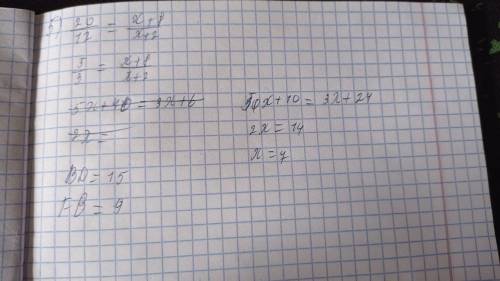 5) 20/12 = x+8/x+2
5/3 = x+8/x+2
5x+40 = 3x+6
2x =
5x+10 = 3x+24
2x = 14
x = 7
BD = 15
FB = 9